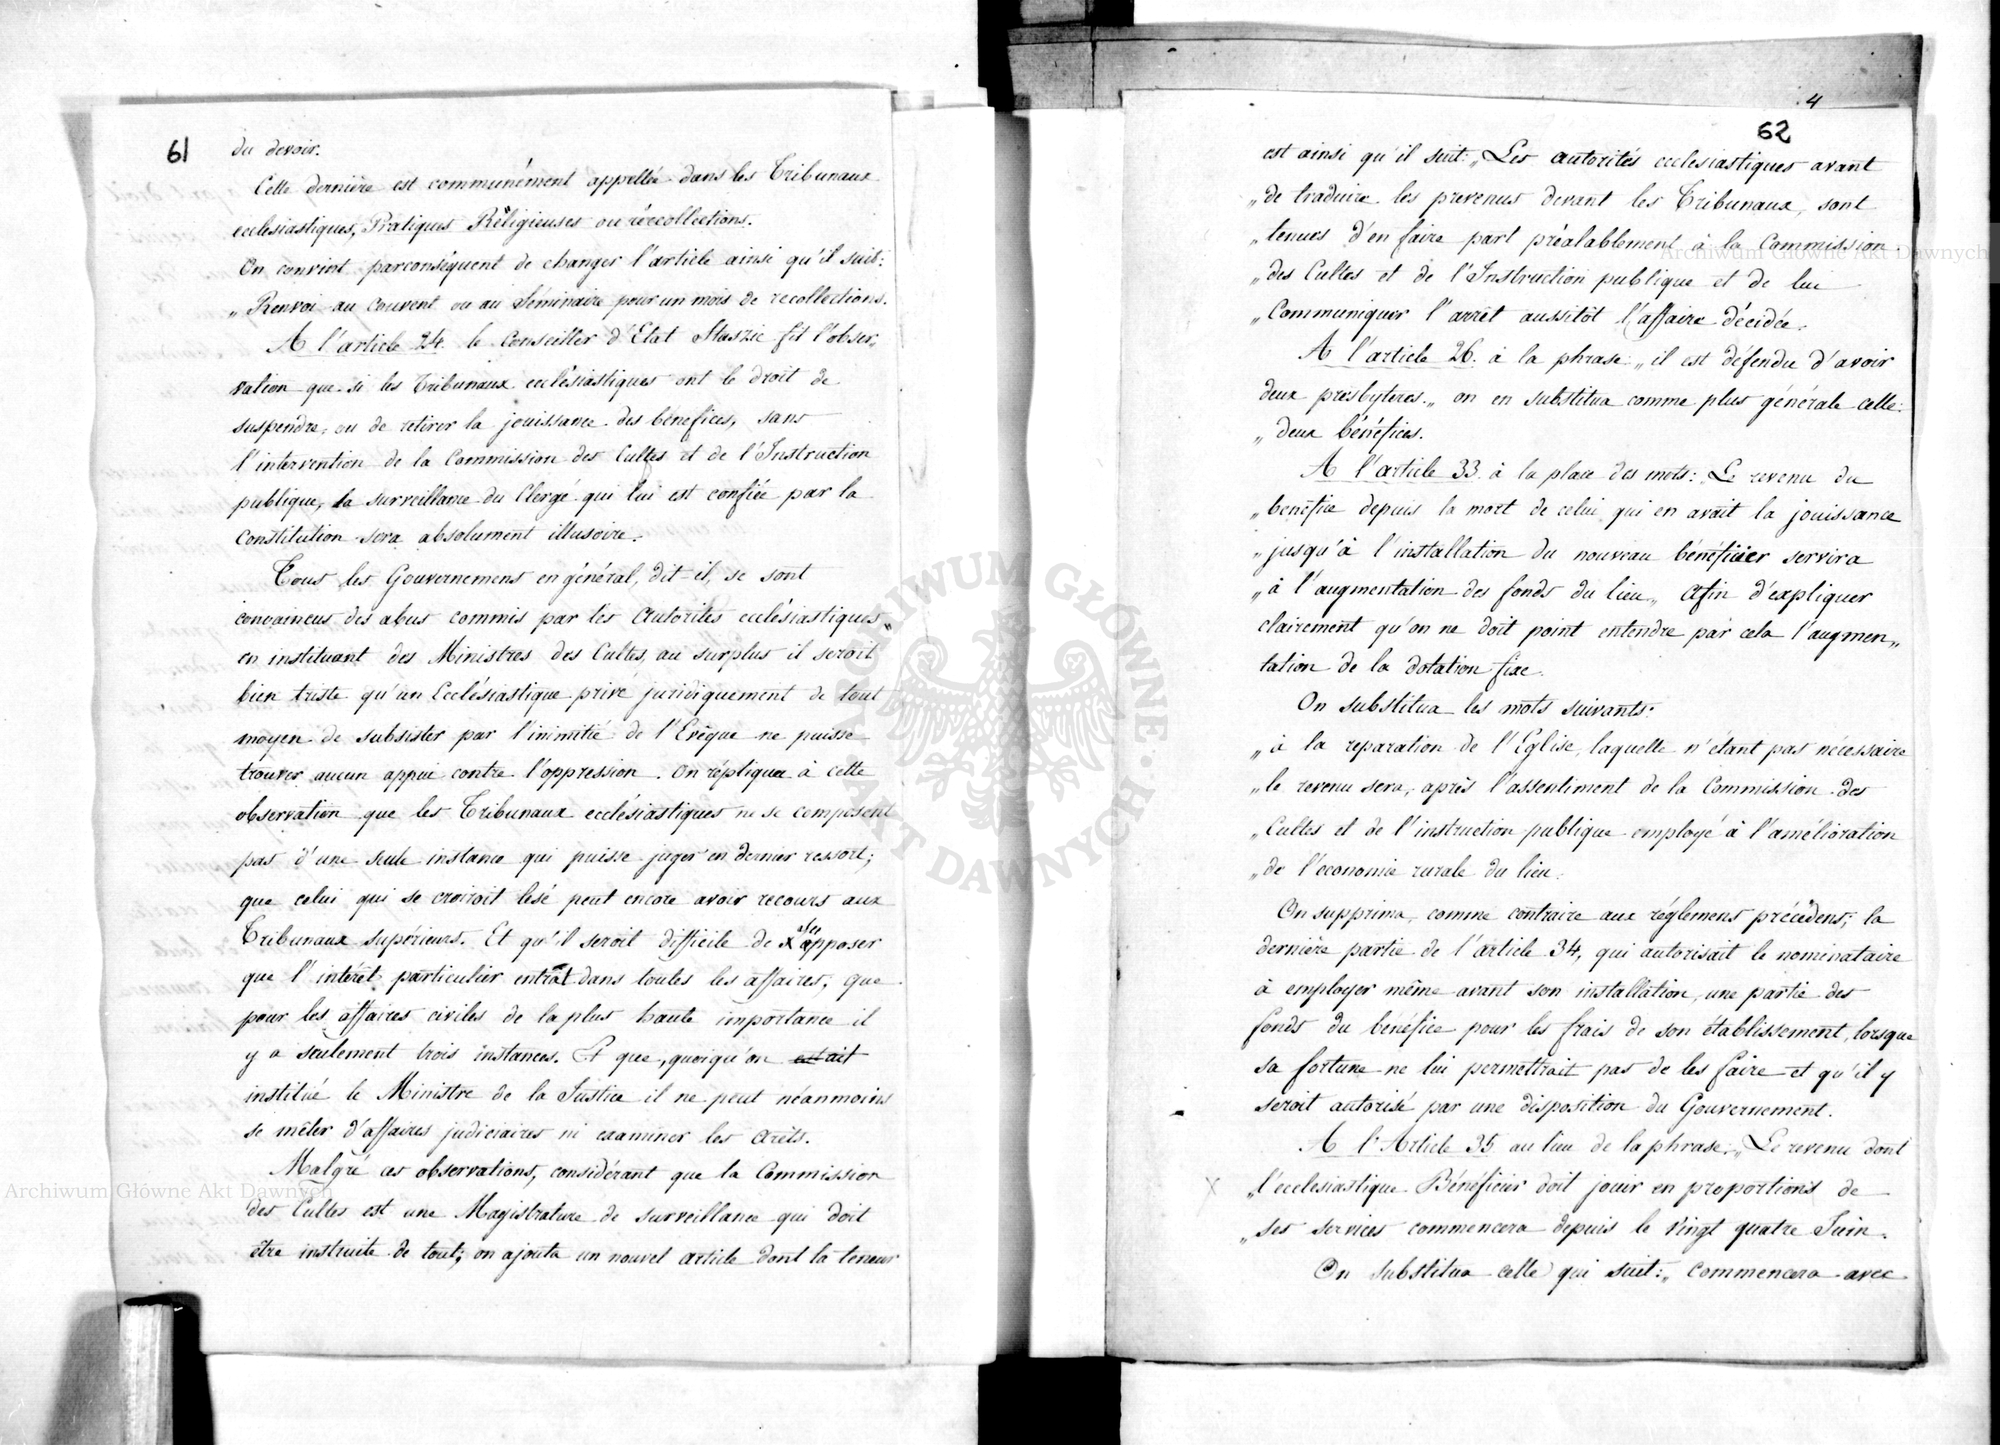 61
du devoir.
Cette dernière est communément appellée dans les Tribunaux
ecclesiastiques, Pratiques Religieuses ou récollections.
On convint parconséquent de changer l'article ainsi qu'il suit:
„ Renvoi au couvent ou au Séminaire pour un mois de recollections.
A l'article 24. le Conseiller d'Etat Staszic fit l'obser„
vation que si les Tribunaux ecclésiastiques ont le droit de
suspendre, ou de retirer la jouissance des bénéfices, sans
l'intervention de la Commission des Cultes et de l'Instruction
publique, la surveillance du Clergé qui lui est confiée par la
Constitution sera absolument illusoire.
Tous les Gouvernemens en général, dit-il, se sont
convaincus des abus commis par les Autorités ecclésiastiques„
en instituant des Ministres des Cultes, au surplus il seroit
bien triste qu'un Ecclésiastique privé juridiquement de tout
moyen de subsister par l'inimitié de l'Evêque ne puisse
trouver aucun appui contre l'oppression. On répliqua à cette
observation que les Tribunaux ecclésiastiques ne se composent
pas d'une seule instance qui puisse juger en dernier ressort;
que celui qui se croiroit lesé peut encore avoir recours aux
Tribunaux supérieurs. Et qu'il seroit difficile de apposer
que l'intérêt particulier entrat dans toutes les affaires; que
pour les affaires civiles de la plus haute importance il
y a seulement trois instances. Et que, quoiqu'on ait
institué le Ministre de la Justice il ne peut néanmoins
se mêler d'affaires judiciaires ni examiner les arêts.
Malgré ces observations, considérant que la Commission
des Cultes est une Magistrature de surveillance qui doit
être instruite de tout; on ajouta un nouvel article dont la teneur
4
62
est ainsi qu'il suit: „ Les autorités ecclesiastiques avant
„ de traduire les prevenus devant les Tribunaux, sont
„ tenues d'en faire part préalablement à la Commission
„ des Cultes et de l'Instruction publique et de lui
„ Communiquer l'arrêt aussitôt l'affaire décidée.
A l'article 26. à la phrase: „ il est défendu d'avoir
deux presbyteres„ on en substitua comme plus générale celle:
„ deux bénéfices.
A l'article 33. à la place des mots: „ Le revenu du
„ benéfice depuis la mort de celui qui en avait la jouissance
„ jusqu'à l'installation du nouveau bénéficier servira
„ à l'augmentation des fonds du lieu„ Afin d'expliquer
clairement qu'on ne doit point entendre par cela l'augmen„
tation de la dotation fixe.
On substitua les mots suivants:
„ à la reparation de l'Eglise, laquelle n'étant pas nécessaire
„ le revenu sera, après l'assentiment de la Commission des
„ Cultes et de l'instruction publique employé à l'amélioration
„ de l'economie rurale du lieu.
On supprima, comme contraire aux réglemens précédens, la
dernière partie de l'article 34, qui autorisait le nominataire
à employer même avant son installation, une partie des
fonds du bénéfice pour les frais de son établissement, lorsque
sa fortune ne lui permettrait pas de les faire et qu'il y
seroit autorisé par une disposition du Gouvernement.
A l'Article 35 au lieu de la phrase: „ Le revenu dont
„ l'ecclesiastique Bénéficier doit jouir en proportions de
„ ses services commencera depuis le vingt quatre Juin.
On substitua celle qui suit: „ commencera avec
ARCHIWUM GŁÓWNE AKT DAWNYCH
Archiwum Główne Akt Dawnych
Archiwum Główne Akt Dawnych